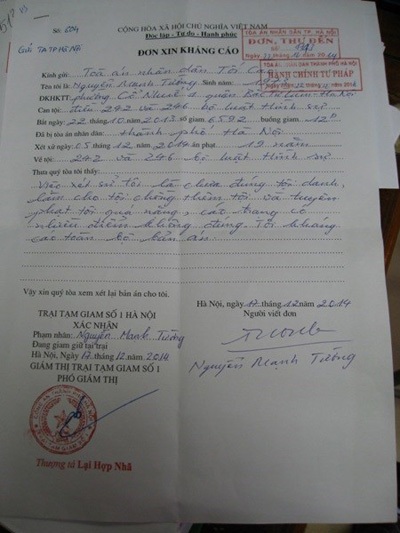 Số: 624
CỘNG HÒA XÃ HỘI CHỦ NGHĨA VIỆT NAM
Độc lập - Tự do - Hạnh phúc
Gửi TATP Hà Nội
TÒA ÁN NHÂN DÂN TP. HÀ NỘI
ĐƠN, THƯ ĐẾN
ĐƠN XIN KHÁNG CÁO
HÀNH CHÍNH TƯ PHÁP
Kính gửi: Toà án nhân dân Tối Cao
Tên tôi là: Nguyễn Mạnh Tường Sinh năm:
ĐKHKTT: phường Cổ Nhuế 2 quận Bắc Từ Liêm - Hà Nội
Can tội: điều 242 và 246 bộ luật Hình sự
Bắt ngày 22 tháng 10 năm 2013 số giam: 6592 buồng giam: 12
Đã bị tòa án nhân dân: thành phố Hà Nội
Xét xử ngày 05 tháng 12 năm 2014 án phạt 19 năm
Về tội: 242 và 246 bộ luật Hình sự
Thưa quý tòa tôi thấy:
Việc xét sử tôi là chưa đúng tội danh,
làm cho tôi chồng thêm tội và tuyên
phạt tôi quá nặng, cáo trạng có
nhiều điểm không đúng. Tôi kháng
cáo toàn bộ bản án.
Vậy xin quý tòa xem xét lại bản án cho tôi.
Hà Nội, ngày 17 tháng 12 năm 2014
Người viết đơn
Nguyễn Mạnh Tường
TRẠI TẠM GIAM SỐ 1 HÀ NỘI
XÁC NHẬN
Phạm nhân: Nguyễn Mạnh Tường
Đang giam giữ tại trại
Hà Nội, Ngày 17 tháng 12 năm 2014
GIÁM THỊ TRẠI TẠM GIAM SỐ 1
PHÓ GIÁM THỊ
Thượng tá Lại Hợp Nhã